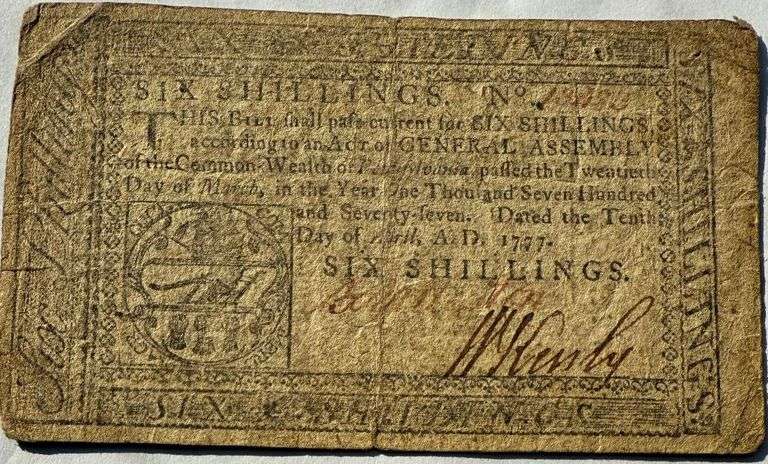 SIX SHILLINGS. No.
THIS BILL shall pass current for SIX SHILLINGS,
according to an ACT of GENERAL ASSEMBLY
of the Common-Wealth of Pennsylvania, passed the Twentieth
Day of March, in the Year One Thousand Seven Hundred
and Seventy-seven. Dated the Tenth
Day of April, A. D. 1777.
SIX SHILLINGS.
Six Shillings
SIX SHILLINGS
SIX SHILLINGS